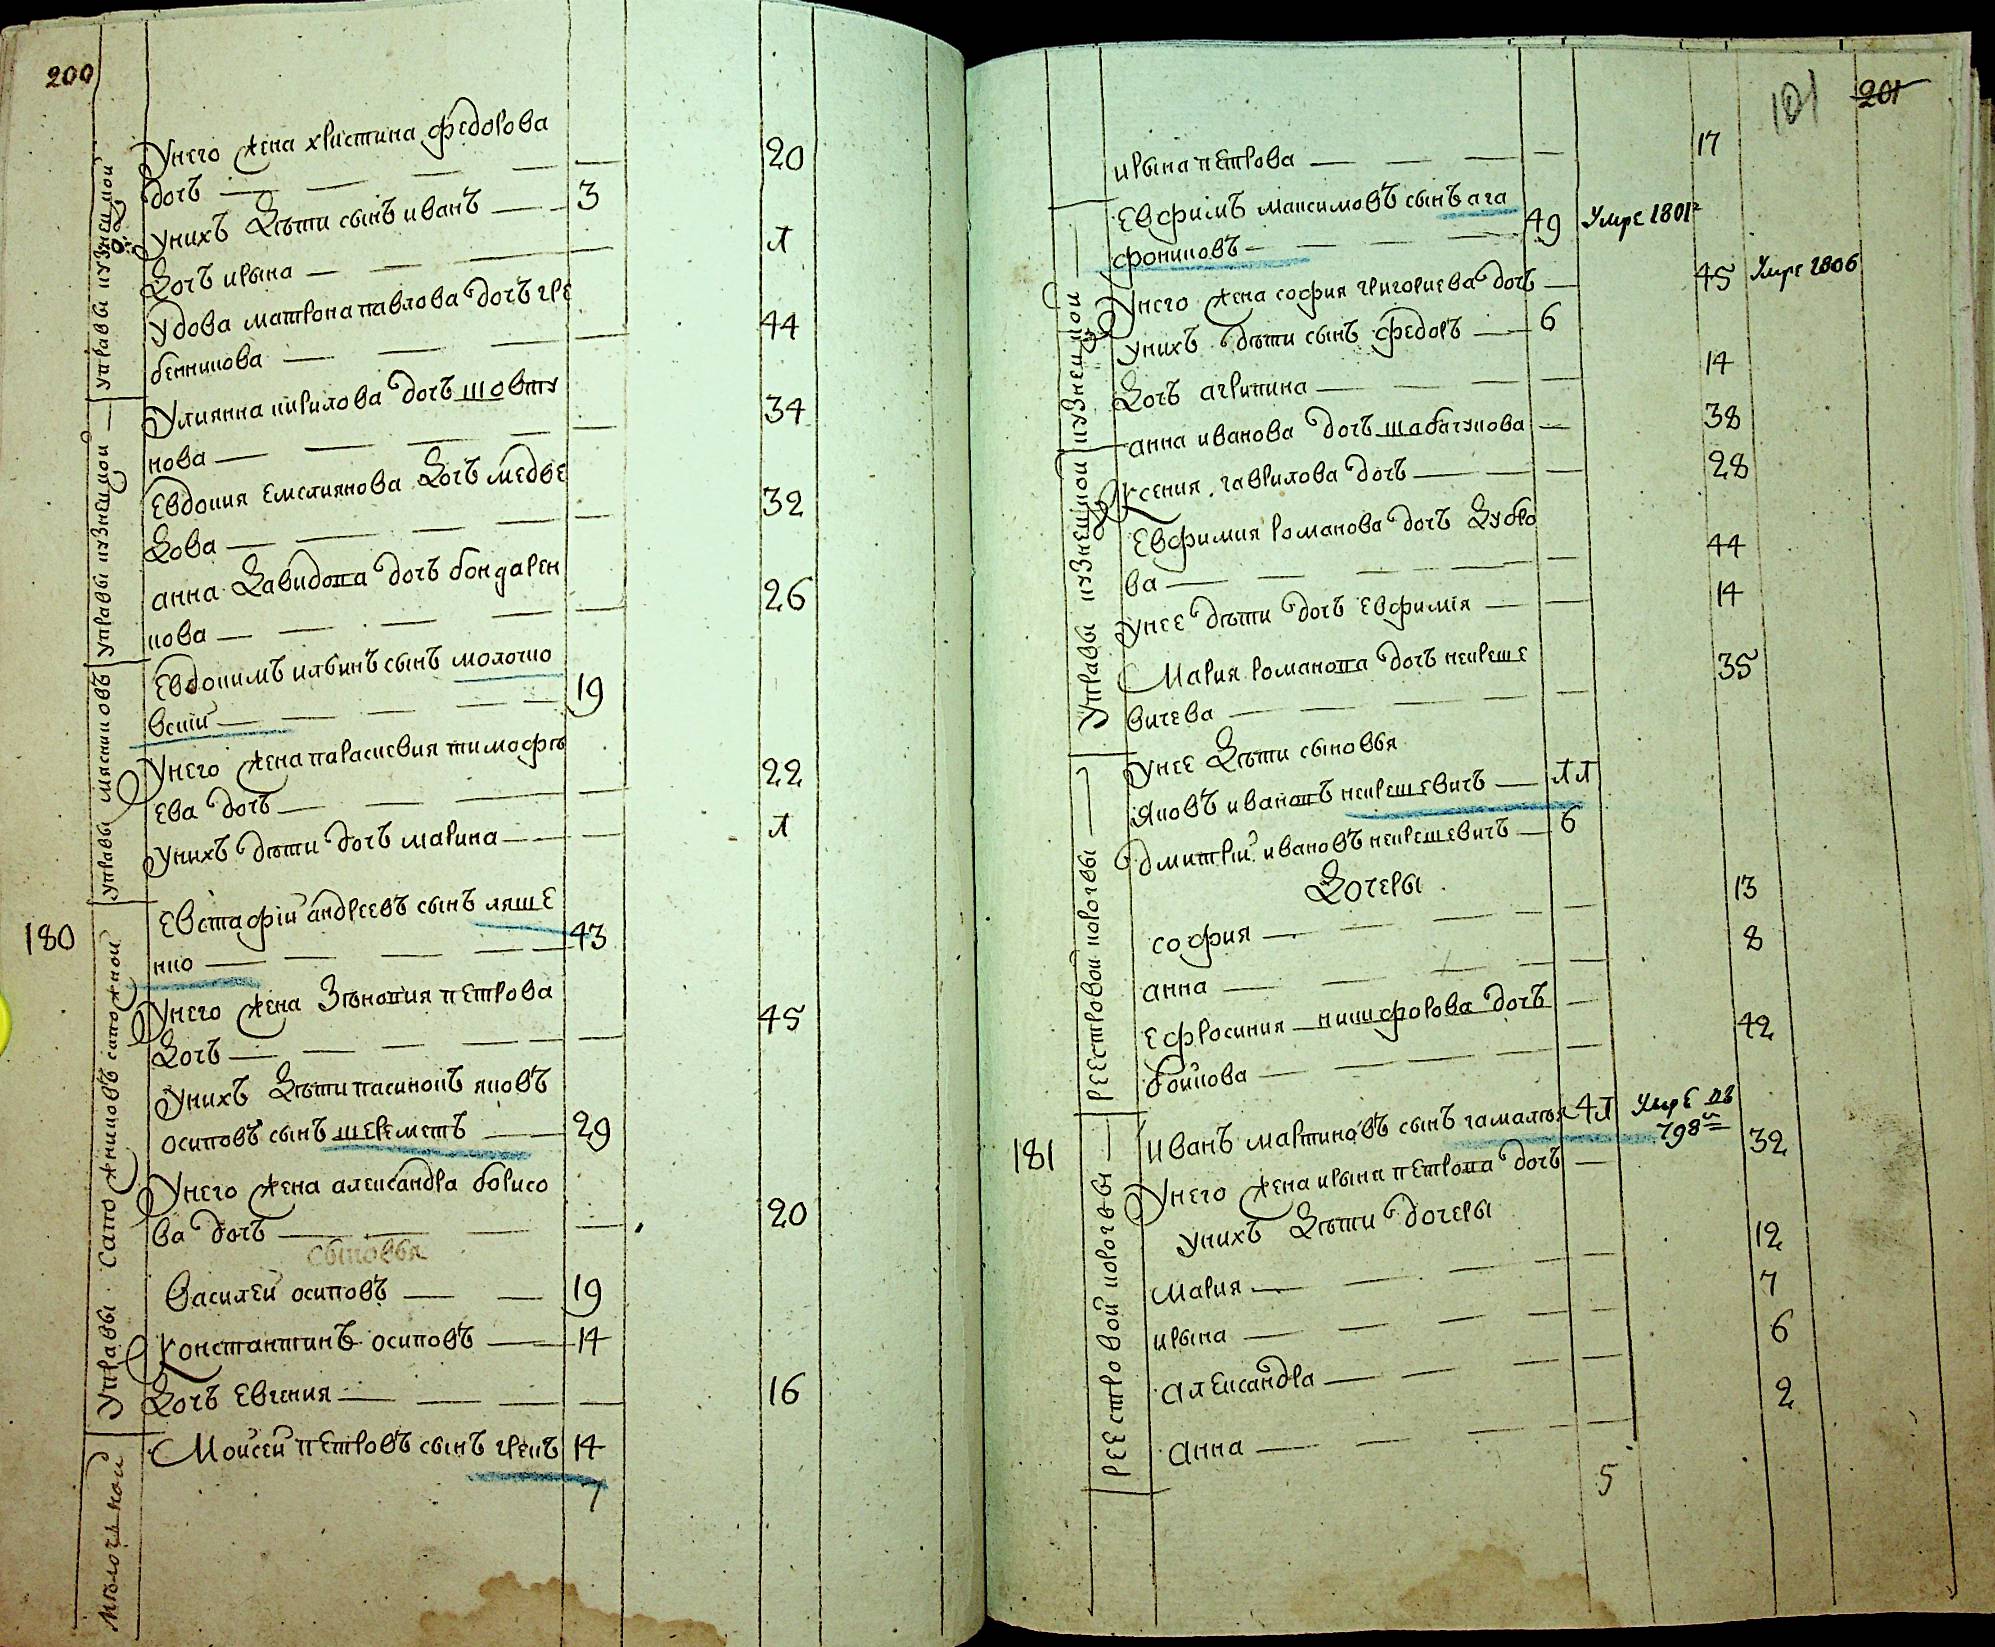 200
Унего жена христина федорова
дочъ — 20
унихъ дѣти сынъ иванъ — 3
дочъ ирына — 1
удова матрона павлова дочъ гре
бенникова — 44
Улиянна кирилова дочъ шовту
нова — 34
Евдокия емелиянова дочъ медве
дова — 32
анна давидова дочъ бондарен
кова — 26
Евдокимъ илвинъ сынъ молочко
вский — 19
Унего жена параскевия тимофѣ
ева дочъ — 22
Унихъ дѣти дочъ марина — 1
180
Евстафий андреевъ сынъ ляше
нко — 43
Унего жена Зѣновия петрова
дочъ — 45
Унихъ дѣти пасинокъ яковъ
осиповъ сынъ шереметъ — 29
Унего жена александра борисо
ва дочъ — 20
сыновья
Василей осиповъ — 19
Константинъ осиповъ — 14
дочъ Евгения — 16
Моисей петровъ сынъ грекъ 14
7
управы кузнецкой
управы кузнецкой
управы мясниковъ
Управы сапожниковъ сапожной
201
101
ирына петрова — 17
Евфимъ максимовъ сынъ ага
фониковъ — 49 Умре 1801г
Унего жена софия григориева дочъ — 45 Умре 1806
унихъ дѣти сынъ федоръ — 6
дочъ агрипина — 14
анна иванова дочъ шабачукова — 38
Ксения гаврилова дочъ — 28
Евфимия романова дочъ Зубко
ва — 44
Унее дѣти дочъ евфимія — 14
Мария романова дочъ некреше
вичева — 35
Унее дѣти сыновья
Яковъ ивановъ некрешевичъ — 11
дмитрій ивановъ некрешевичъ — 6
дочеры
софия — 13
анна — 8
Ефросиния никифорова дочъ
бойкова — 42
181
Иванъ мартиновъ сынъ гамалѣя 41 Умре въ
798м
Унего жена ирына петрова дочъ — 32
унихъ дѣти дочеры
Мария — 12
ирына — 7
александра — 6
анна — 2
5
кузнецкой
Управы кузнецкой
Реестровой корогвы
Реестровой корогвы